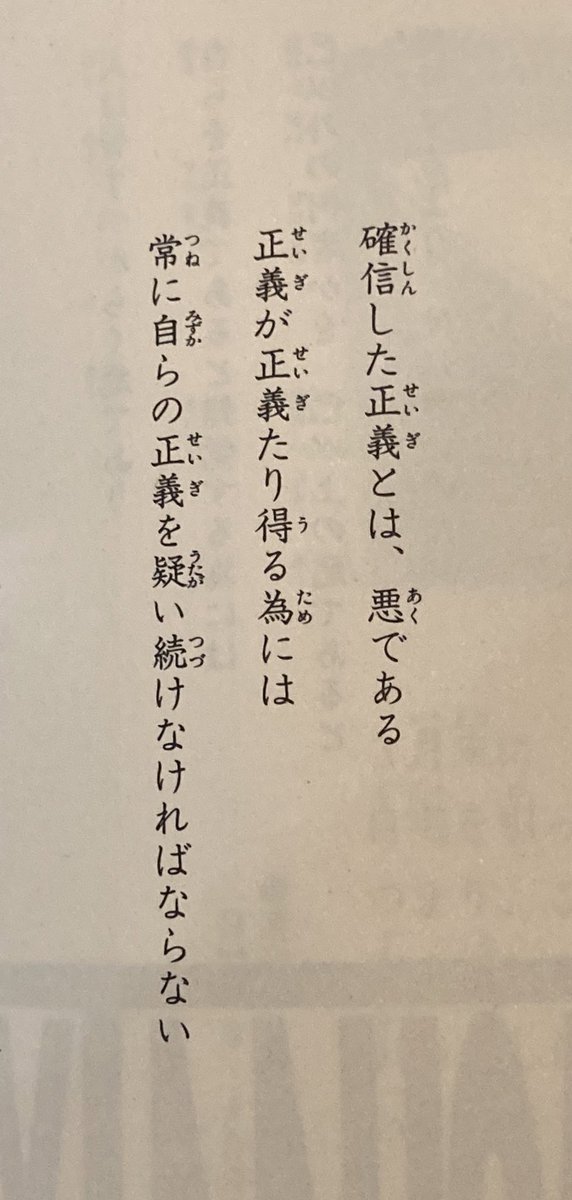 確信した正義とは、悪である
正義が正義たり得る為には
常に自らの正義を疑い続けなければならない